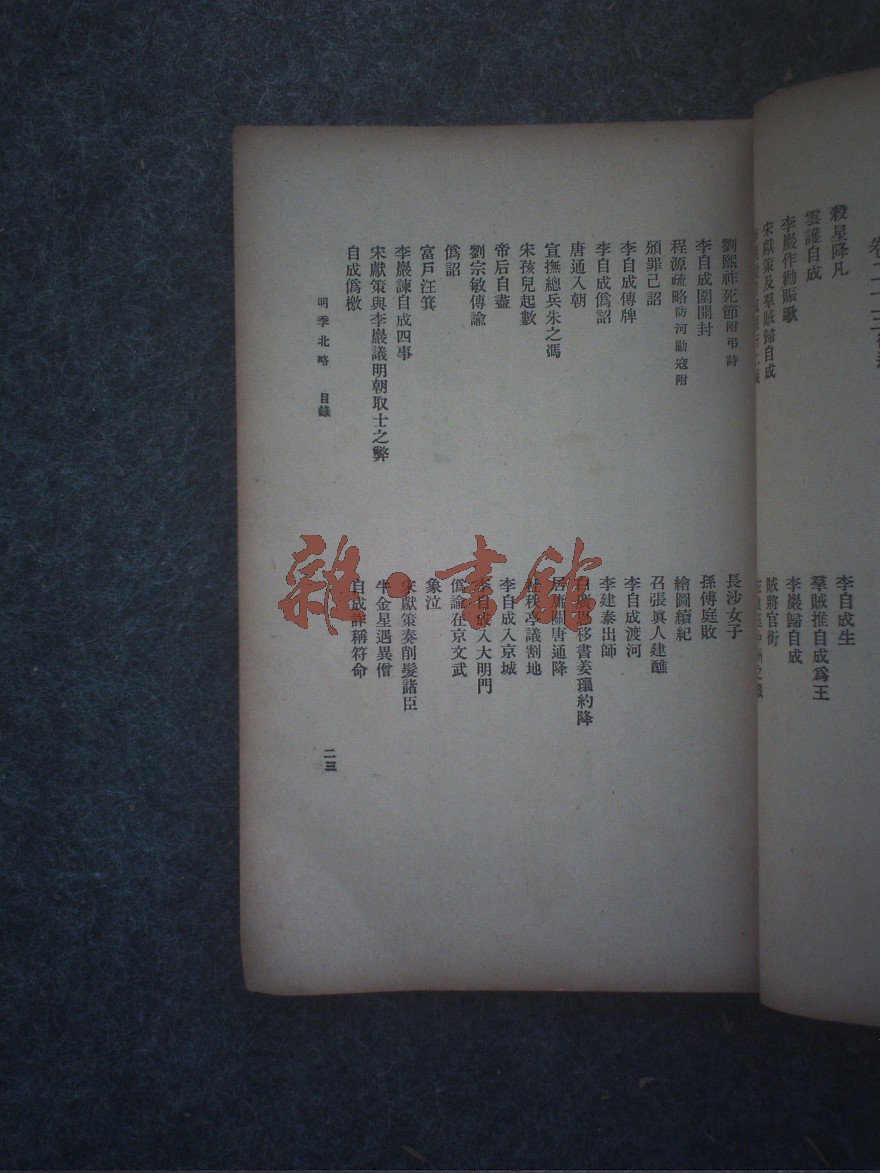 殺星降凡
李自成生
雲護自成
羣賊推自成爲王
李巖作勸賑歌
李巖歸自成
宋獻策及羣賊歸自成
賊將官銜
劉熙祚死節附弔詩
長沙女子
李自成圍開封
孫傳庭敗
程源疏略防河勦寇附
繪圖續紀
頒罪己詔
召張眞人建醮
李自成傳牌
李自成渡河
李自成僞詔
李建泰出師
唐通入朝
白廣恩移書姜瓖約降
宣撫總兵朱之馮
居庸關唐通降
宋孩兒起數
杜秩亭議割地
帝后自盡
李自成入京城
劉宗敏傳諭
李自成入大明門
僞詔
僞諭在京文武
富戶汪箕
象泣
李巖諫自成四事
宋獻策奏削髮諸臣
宋獻策與李巖議明朝取士之弊
牛金星遇異僧
自成僞檄
自成詐稱符命
明季北略 目錄
二三
雜·書館